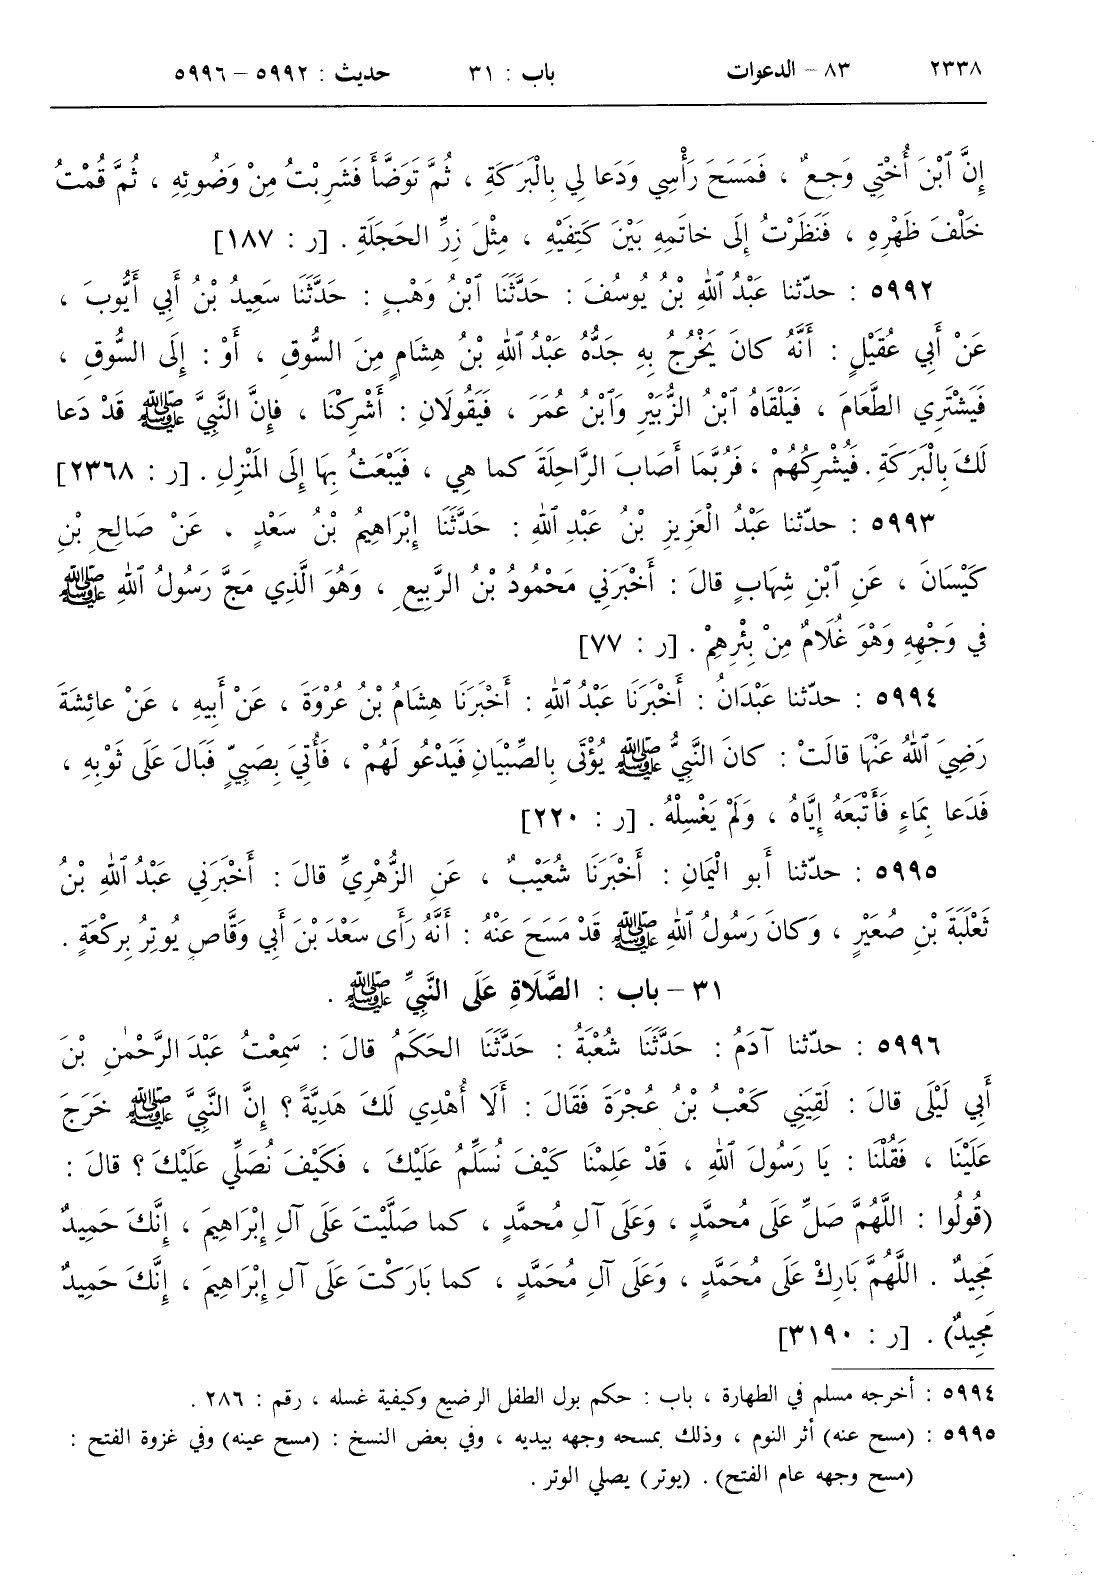 ٢٣٣٨ ٨٣ – الدعوات باب : ٣١ حديث : ٥٩٩٢ – ٥٩٩٦
إِنَّ ٱبْنَ أُخْتِي وَجِعٌ ، فَمَسَحَ رَأْسِي وَدَعا لِي بِالْبَرَكَةِ ، ثُمَّ تَوَضَّأَ فَشَرِبْتُ مِنْ وَضُوئِهِ ، ثُمَّ قُمْتُ
خَلْفَ ظَهْرِهِ ، فَنَظَرْتُ إِلَى خاتَمِهِ بَيْنَ كَتِفَيْهِ ، مِثْلَ زِرِّ الحَجَلَةِ . [ر : ١٨٧]
٥٩٩٢ : حدّثنا عَبْدُ ٱللهِ بْنُ يُوسُفَ : حَدَّثَنَا ٱبْنُ وَهْبٍ : حَدَّثَنَا سَعِيدُ بْنُ أَبِي أَيُّوبَ ،
عَنْ أَبِي عُقَيْلٍ : أَنَّهُ كانَ يَخْرُجُ بِهِ جَدُّهُ عَبْدُ ٱللهِ بْنُ هِشَامٍ مِنَ السُّوقِ ، أَوْ : إِلَى السُّوقِ ،
فَيَشْتَرِي الطَّعَامَ ، فَيَلْقَاهُ ٱبْنُ الزُّبَيْرِ وَٱبْنُ عُمَرَ ، فَيَقُولَانِ : أَشْرِكْنَا ، فَإِنَّ النَّبِيَّ ﷺ قَدْ دَعا
لَكَ بِالْبَرَكَةِ . فَيُشْرِكُهُمْ ، فَرُبَّمَا أَصَابَ الرَّاحِلَةَ كما هِي ، فَيَبْعَثُ بِهَا إِلَى المَنْزِلِ . [ر : ٢٣٦٨]
٥٩٩٣ : حدّثنا عَبْدُ الْعَزِيزِ بْنُ عَبْدِ ٱللهِ : حَدَّثَنَا إِبْرَاهِيمُ بْنُ سَعْدٍ ، عَنْ صَالِحِ بْنِ
كَيْسَانَ ، عَنِ ٱبْنِ شِهَابٍ قالَ : أَخْبَرَنِي مَحْمُودُ بْنُ الرَّبِيعِ ، وَهُوَ الَّذِي مَجَّ رَسُولُ ٱللهِ ﷺ
فِي وَجْهِهِ وَهْوَ غُلَامٌ مِنْ بِئْرِهِمْ . [ر : ٧٧]
٥٩٩٤ : حدّثنا عَبْدَانُ : أَخْبَرَنَا عَبْدُ ٱللهِ : أَخْبَرَنَا هِشَامُ بْنُ عُرْوَةَ ، عَنْ أَبِيهِ ، عَنْ عائِشَةَ
رَضِيَ ٱللهُ عَنْهَا قالَتْ : كانَ النَّبِيُّ ﷺ يُؤْتَى بِالصِّبْيَانِ فَيَدْعُو لَهُمْ ، فَأُتِيَ بِصَبِيٍّ فَبَالَ عَلَى ثَوْبِهِ ،
فَدَعا بِمَاءٍ فَأَتْبَعَهُ إِيَّاهُ ، وَلَمْ يَغْسِلْهُ . [ر : ٢٢٠]
٥٩٩٥ : حدّثنا أَبو الْيَمَانِ : أَخْبَرَنَا شُعَيْبٌ ، عَنِ الزُّهْرِيِّ قالَ : أَخْبَرَنِي عَبْدُ ٱللهِ بْنُ
ثَعْلَبَةَ بْنِ صُعَيْرٍ ، وَكانَ رَسُولُ ٱللهِ ﷺ قَدْ مَسَحَ عَنْهُ : أَنَّهُ رَأَى سَعْدَ بْنَ أَبِي وَقَّاصٍ يُوتِرُ بِرَكْعَةٍ .
٣١ – باب : الصَّلَاةِ عَلَى النَّبِيِّ ﷺ .
٥٩٩٦ : حدّثنا آدَمُ : حَدَّثَنَا شُعْبَةُ : حَدَّثَنَا الحَكَمُ قالَ : سَمِعْتُ عَبْدَ الرَّحْمٰنِ بْنَ
أَبِي لَيْلَى قالَ : لَقِيَنِي كَعْبُ بْنُ عُجْرَةَ فَقَالَ : أَلَا أُهْدِي لَكَ هَدِيَّةً ؟ إِنَّ النَّبِيَّ ﷺ خَرَجَ
عَلَيْنَا ، فَقُلْنَا : يَا رَسُولَ ٱللهِ ، قَدْ عَلِمْنَا كَيْفَ نُسَلِّمُ عَلَيْكَ ، فَكَيْفَ نُصَلِّي عَلَيْكَ ؟ قالَ :
(قُولُوا : اللَّهُمَّ صَلِّ عَلَى مُحمَّدٍ ، وَعَلَى آلِ مُحمَّدٍ ، كما صَلَّيْتَ عَلَى آلِ إِبْرَاهِيمَ ، إِنَّكَ حَمِيدٌ
مَجِيدٌ . اللَّهُمَّ بَارِكْ عَلَى مُحَمَّدٍ ، وَعَلَى آلِ مُحَمَّدٍ ، كما بَارَكْتَ عَلَى آلِ إِبْرَاهِيمَ ، إِنَّكَ حَمِيدٌ
مَجِيدٌ) . [ر : ٣١٩٠]
٥٩٩٤ : أخرجه مسلم في الطهارة ، باب : حكم بول الطفل الرضيع وكيفية غسله ، رقم : ٢٨٦ .
٥٩٩٥ : (مسح عنه) أثر النوم ، وذلك بمسحه وجهه بيديه ، وفي بعض النسخ : (مسح عينه) وفي غزوة الفتح :
(مسح وجهه عام الفتح) . (يوتر) يصلي الوتر .